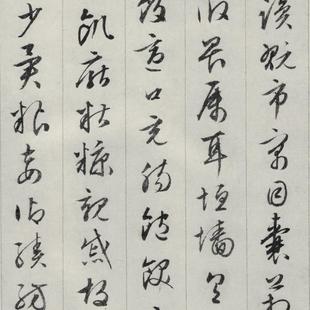 讀翫市寓目囊箱
攸畏屬耳垣墻具
飯適口充腸飽飫
飢厭糟糠親戚故
少異糧妾御績紡